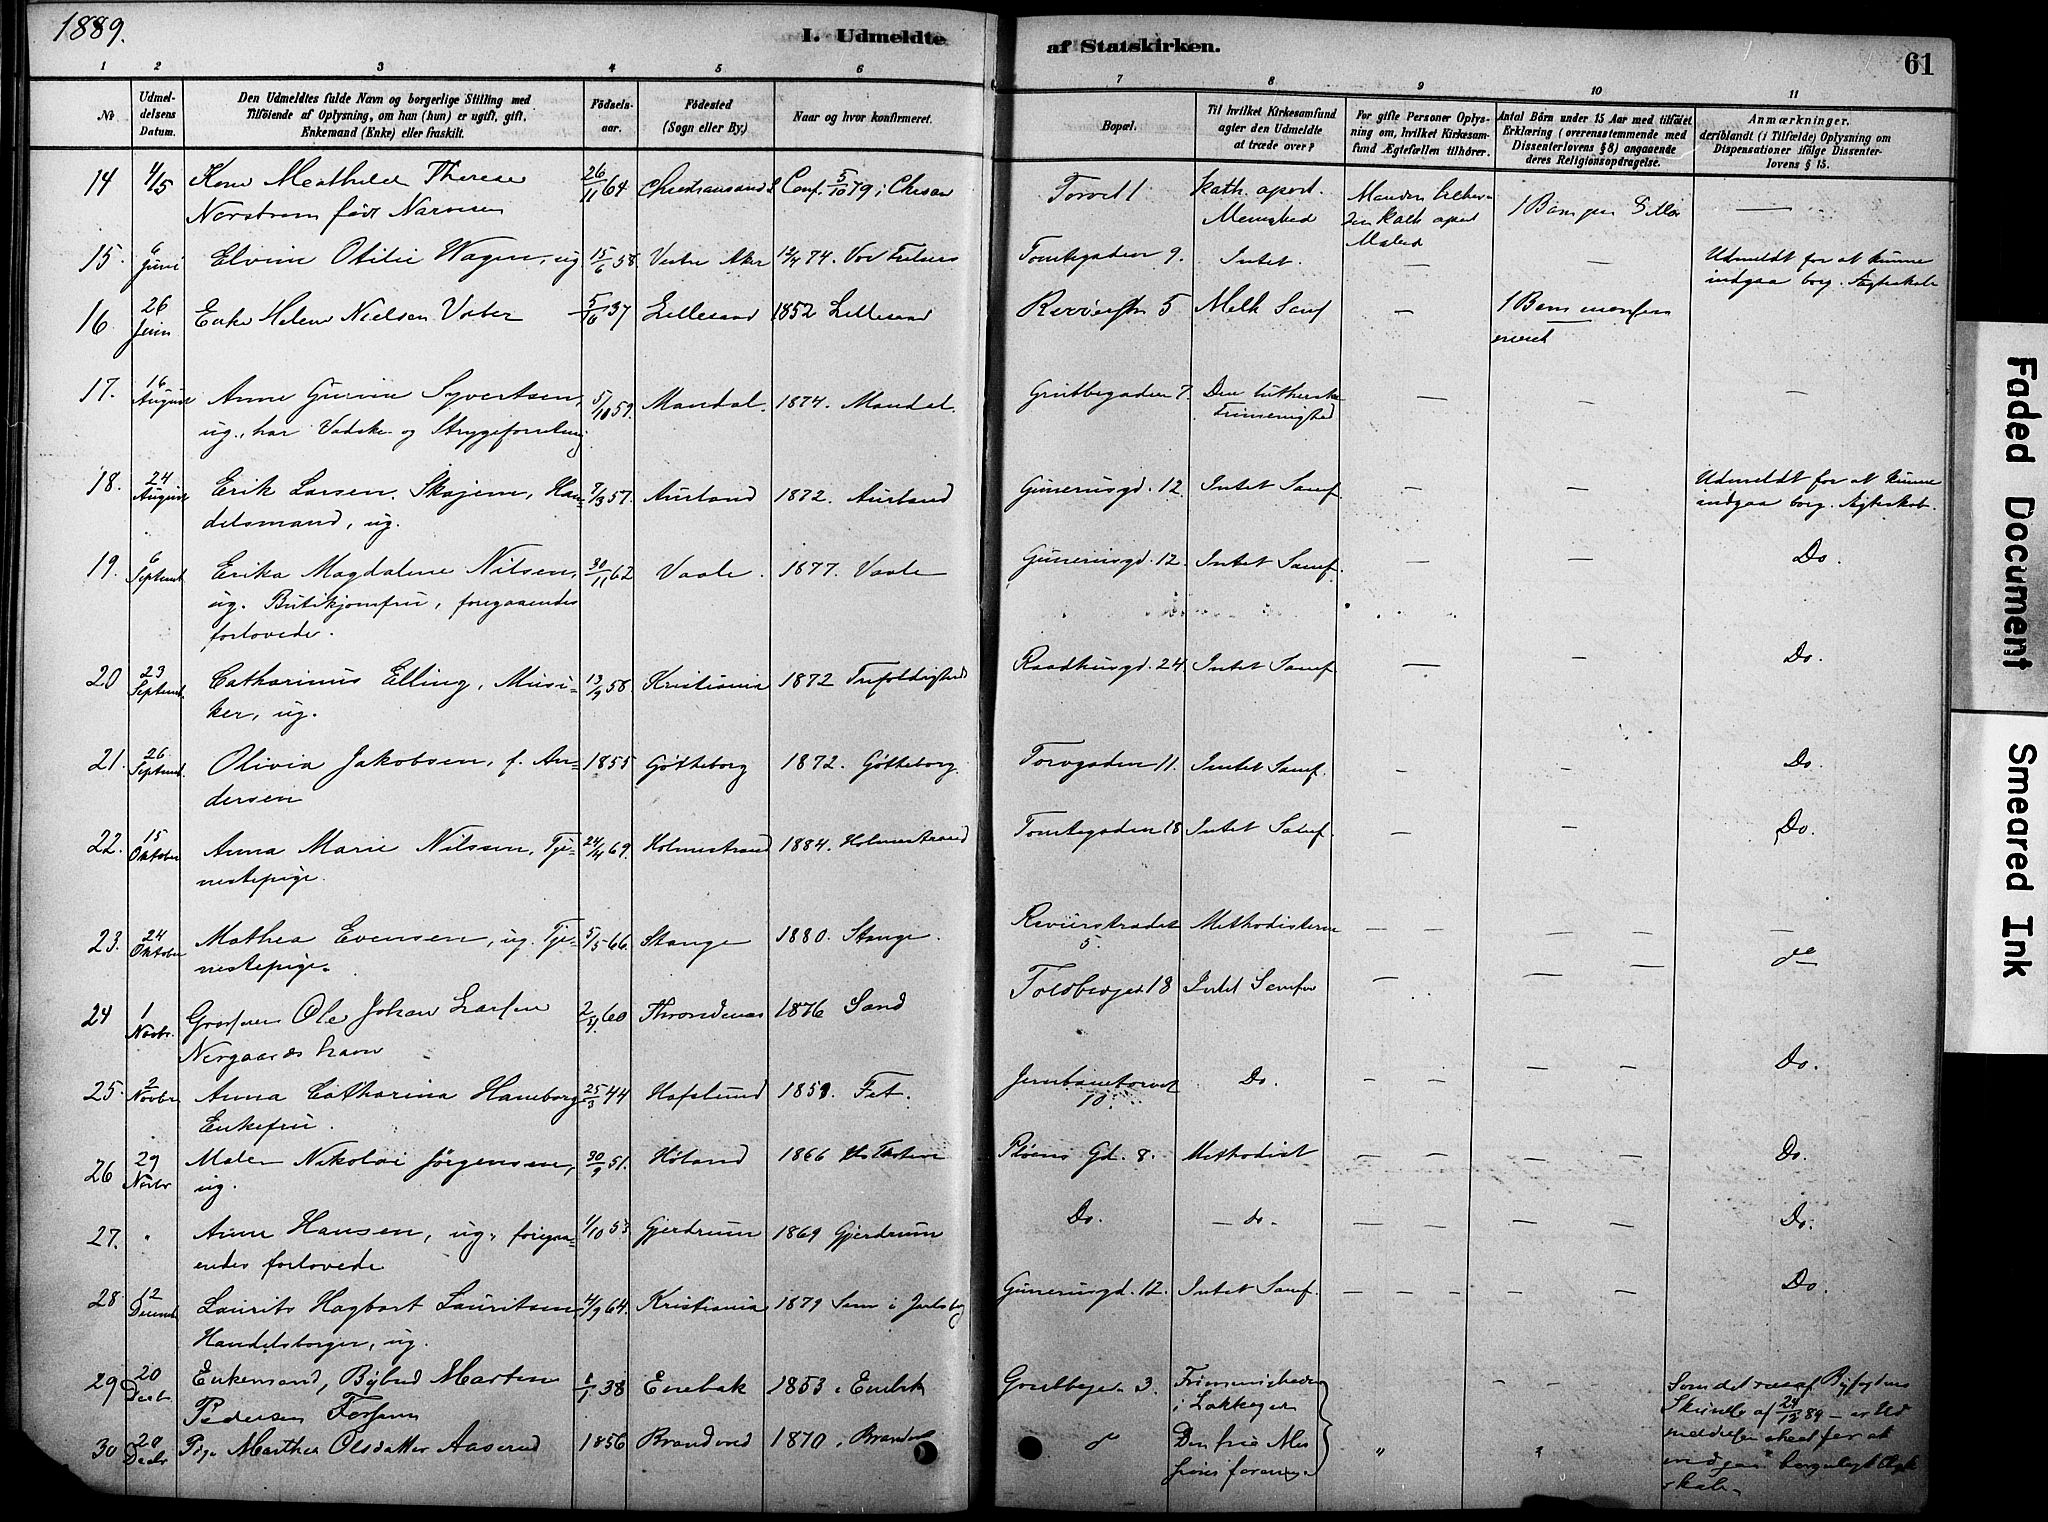 1889.
I. Udmeldte
af Statskirken.
61
1 2 3 4 5 6 7 8 9 10 11
No
Udmel-
delsens
Datum.
Den Udmeldtes fulde Navn og borgerlige Stilling med
Tilföiende af Oplysning, om han (hun) er ugift, gift,
Enkemand (Enke) eller fraskilt.
Fødsels-
aar.
Fødested
(Sogn eller By.)
Naar og hvor konfirmeret.
Bopæl.
Til hvilket Kirkesamfund
agter den Udmeldte
at træde over?
For gifte Personer Oplys-
ning om, hvilket Kirkesam-
fund Ægtefællen tilhører.
Antal Børn under 15 Aar med tilføiet
Erklæring (overensstemmende med
Dissenterlovens § 8) angaaende
deres Religionsopdragelse.
Anmærkninger,
deriblandt (i Tilfælde) Oplysning om
Dispensationer ifølge Dissenter-
lovens § 15.
14 4/5 Kone Mathilde Therese 26/11 64 Christiansand Conf. 5/10 79 i Chrsan Torvet 1 kath. apost.
Norstrøm født Narvesen Menighed
15. 6 Juni Elvine Otilie Wagen, ug 15/6 58. Vestre Aker 12/4 74. Vor Frelsers Tomtegaden 9. Intet. — — Udmeldt for at kunne
indgaa borg. Ægteskab
16. 26 Juni Enke Helene Nielsen 5/10 37 Lillesand 1852 Lillesand 5 Meth Samf — 1 Barn
17. 16 August Anne Gurine Syvertsen, 5/10 59. Mandal. 1874. Mandal. Grubbegaden 7. Den lutherske — — —
ug., har Vadske og Strygeforretning Frimenighed
18. 24 August Erik Larsen Skajem, Han- 7/3 57. Aurland 1872. Aurland Gunerusgd. 12. Intet Samf. — — Udmeldt for at kunne
delsmand, ug. indgaa borg. Ægteskab.
19. 6 Septemb Erika Magdalene Nilsen, 30/11 62 Vaale. 1877. Vaale Gunerusgd. 12. Intet Samf. — — Do.
ug. Butikjomfru, foregaaendes
forlovede.
20 23 Septemb. Catharinus Elling, Musi- 13/9 58 Kristiania 1872 Trefoldighed Raadhusgd. 24. Intet Samf — — Do.
ker, ug.
21. 26 Septemb. Olivia Jakobsen, f. An- 1855 Götteborg 1872. Götteborg. Torvgaden 11. Intet Samf. — — Do.
dersen
22. 15 Oktober Anna Marie Nilssen, Tje- 24/4 69. Holmestrand 1884. Holmestrand Tomtegaden 18 Intet Samf. — — Do.
nestepige.
23. 24 Oktober Mathea Evensen, ug. Tje- 5/5 66. Stange 1880. Stange. Revierstrædet Methodisterne — — — —
nestepige. 5.
24 1 Novbr. Ole Johan Larsen 2/4 60 Throndenas 1876 Sand 18 Intet Samfu — — — do
Nergaardshavn
25. 2 Novbr Anna Catharina Haneborg 25/3 44 Hafslund 1859. Fet. Jernbanetorvet Do. — — — — Do.
Enkefru. 10.
26 29 Novbr Nikolai Jørgensen, 30/9 51. Høland 1866 Pløens Gd. 8. Methodist — — — — Do.
ug.
27. " Anne Hansen, ug., foregaa- 1/10 53 Gjerdrum 1869 Gjerdrum Do. — do — — — — — Do.
endes forlovede
28 12 Decemb Laurits Hagbart Lauritsen, 4/9 64. Kristiania 1879 Sem i Jarlsberg Gunerusgd. 12. Intet Samf. — — — — Do.
Handelsborger, ug.
29 20 Decbr. Enkemand, Bybud Martin 38 Enebak 1853 i Enebak 3. Frimenigheden
Pedersen i Lakkegen
30 20 Decbr Pige Marthea Olsdatter Aaserud 1856 Brandvold 1870 i do Den frie Mis " "
Faded Document
Smeared Ink